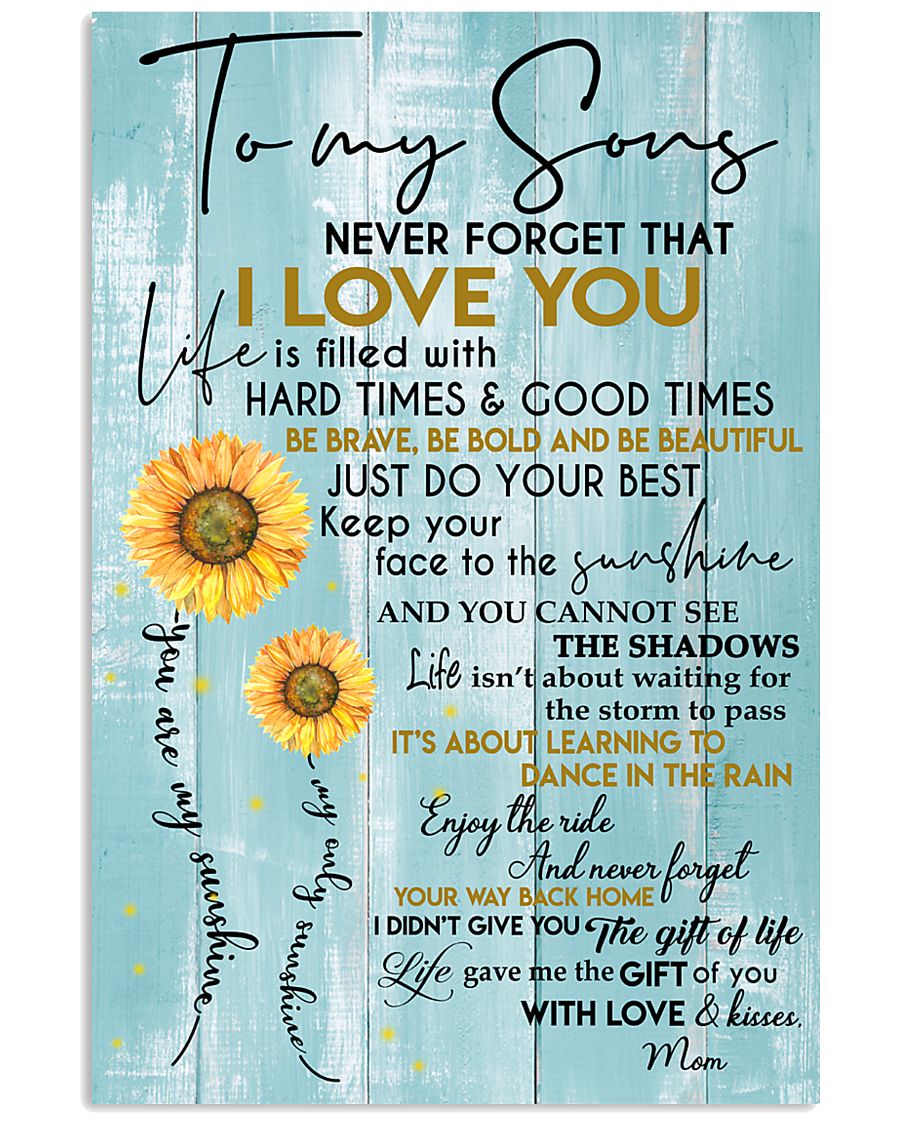 To my Sons
NEVER FORGET THAT
I LOVE YOU
Life is filled with
HARD TIMES & GOOD TIMES
BE BRAVE, BE BOLD AND BE BEAUTIFUL
JUST DO YOUR BEST
Keep your
face to the sunshine
AND YOU CANNOT SEE
THE SHADOWS
Life isn't about waiting for
the storm to pass
IT'S ABOUT LEARNING TO
DANCE IN THE RAIN
Enjoy the ride
And never forget
YOUR WAY BACK HOME
I DIDN'T GIVE YOU The gift of life
Life gave me the GIFT of you
WITH LOVE & kisses,
Mom
you are my sunshine
my only sunshine